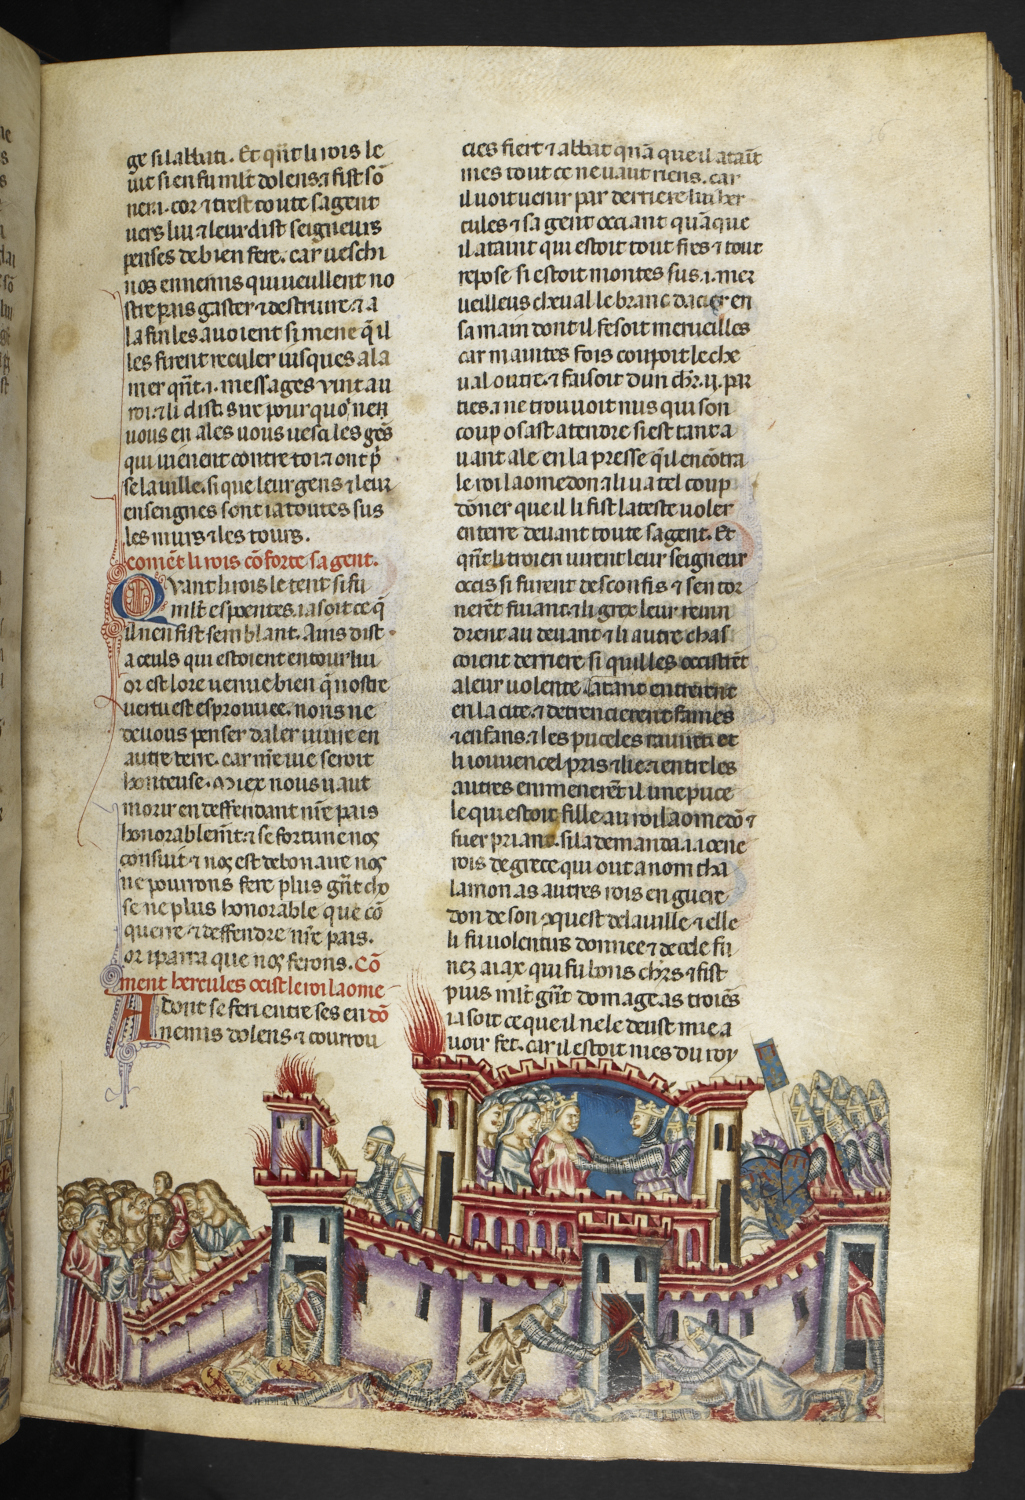 ge si labbati. Et qñt li rois le
uit si en fu ml̃t dolens ⁊ fist sõ
neri. cor ⁊ trest toute sa gent
uers lui ⁊ leur dist seigneurs
penses de bien fere. car ueschi
nos ennemis qui ueullent no
stre païs gaster ⁊ destruire. ⁊ a
la fin les auoient si mene q̃ il
les firent reculer iusques a la
mer qñt .i. messages uint au
roi. ⁊ li dist. sire pour quoi nen
uous en ales uous uesci les gẽs
qui uienent contre toi ⁊ ont p̃
se la uille. si que leur gens ⁊ leur
enseignes sont ia toutes sus
les murs ⁊ les tours.
comẽt li rois cõforte sa gent.
Quant li rois le tent si fu
ml̃t espoentes. ia soit ce q̃
il nen fist semblant. Ains dist
a ceuls qui estoient entour lui
or est lore uenue bien q̃ nostre
uertu est esprouuee. nons ne
deuons penser daler uiure en
autre terre. car nr̃e uie seroit
honteuse. Miex nous uaut
morir en deffendant nr̃e païs
honorablem̃t. ⁊ se fortune nos
consiut ⁊ nos est debonaire nos
ne pourrons fere plus gñt cho
se ne plus honorable que cõ
querre ⁊ deffendre nr̃e païs.
or i parra que nos ferons. Cõ
ment hercules ocist le roi laome
Adont se feri entre ses en dõ
nemis dolens ⁊ courrou
cies fiert ⁊ abbat quã que il ataint
mes tout ce ne uaut riens. car
il uoit uenir par derriere lui her
cules ⁊ sa gent occiant quãque
il ataint qui estoit tout fres ⁊ tout
repose si estoit montes sus .i. mer
ueilleus cheual le branc dacier en
sa main dont il fesoit merueilles
car maintes fois coupoit le che
ual outre. ⁊ faisoit dun chr̃. ij. par
ties. ⁊ ne trouuoit nus qui son
coup osast atendre si est tant a
uant ale en la presse q̃ il encõtra
le roi laomedon ⁊ li ua tel coup
dõner que il li fist la teste uoler
en terre deuant toute sa gent. Et
qñt li troien uirent leur seigneur
occis si furent desconfis ⁊ sen tor
nerẽt fuiant. ⁊ li grec leur reuin
drent au deuant ⁊ li autre chas
coient derriere si quil les occistrẽt
a leur uolente. Atant entrerent
en la cite. ⁊ detrencierent fames
⁊ enfans. ⁊ les puceles rauirent et
li iouuencel pris ⁊ lie. ⁊ entre les
autres en menerẽt il une puce
le qui estoit fille au roi laomedõ ⁊
fu er priant. si la demanda .i. iouene
rois de grece qui out a nom tha
lamon as autres rois en guerre
don de son 9quest de la uille ⁊ elle
li fu uolentiers donnee ⁊ de cele fu
nez aiax qui fu bons chr̃s ⁊ fist
puis ml̃t gñt domage as troiẽs
ia soit ce que il ne le deust mie a
uoir fet. car il estoit nies du roy